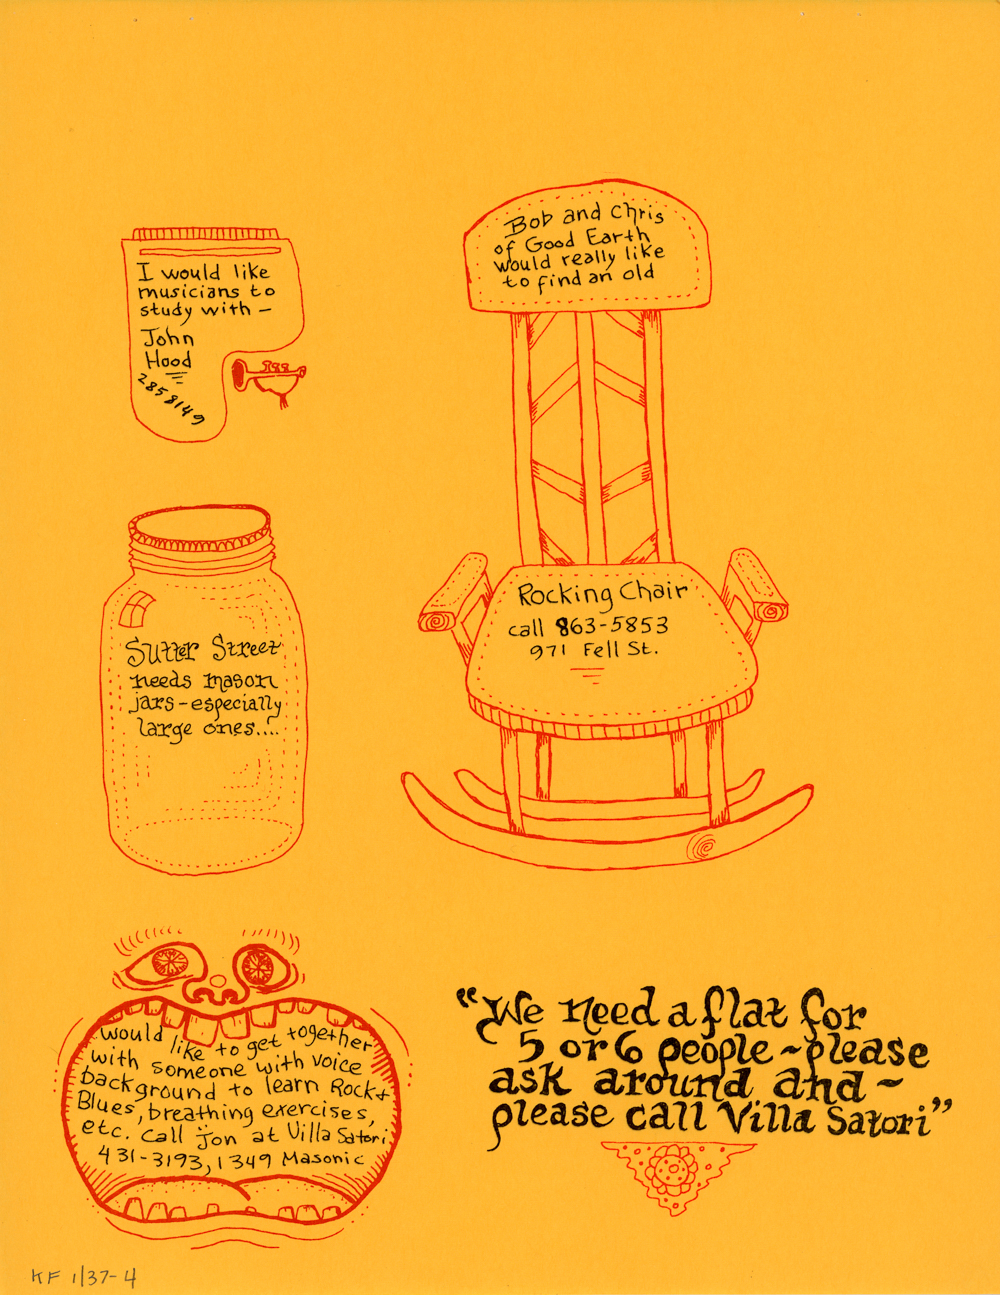 I would like
musicians to
study with –
John
Hood
2858149
Bob and Chris
of Good Earth
would really like
to find an old
Rocking Chair
call 863-5853
971 Fell St.
Sutter Street
needs mason
jars – especially
large ones....
would like to get together
with someone with voice
background to learn Rock +
Blues, breathing exercises,
etc. call Jon at Villa Satori
431-3193, 1349 Masonic
"We need a flat for
5 or 6 people ~ please
ask around and ~
please call Villa Satori"
KF 1/37-4